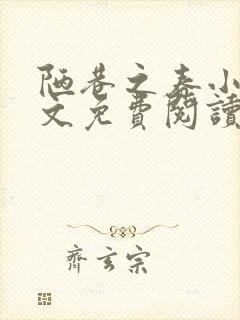 陋巷之春小
文免費閱讀
齊玄宗